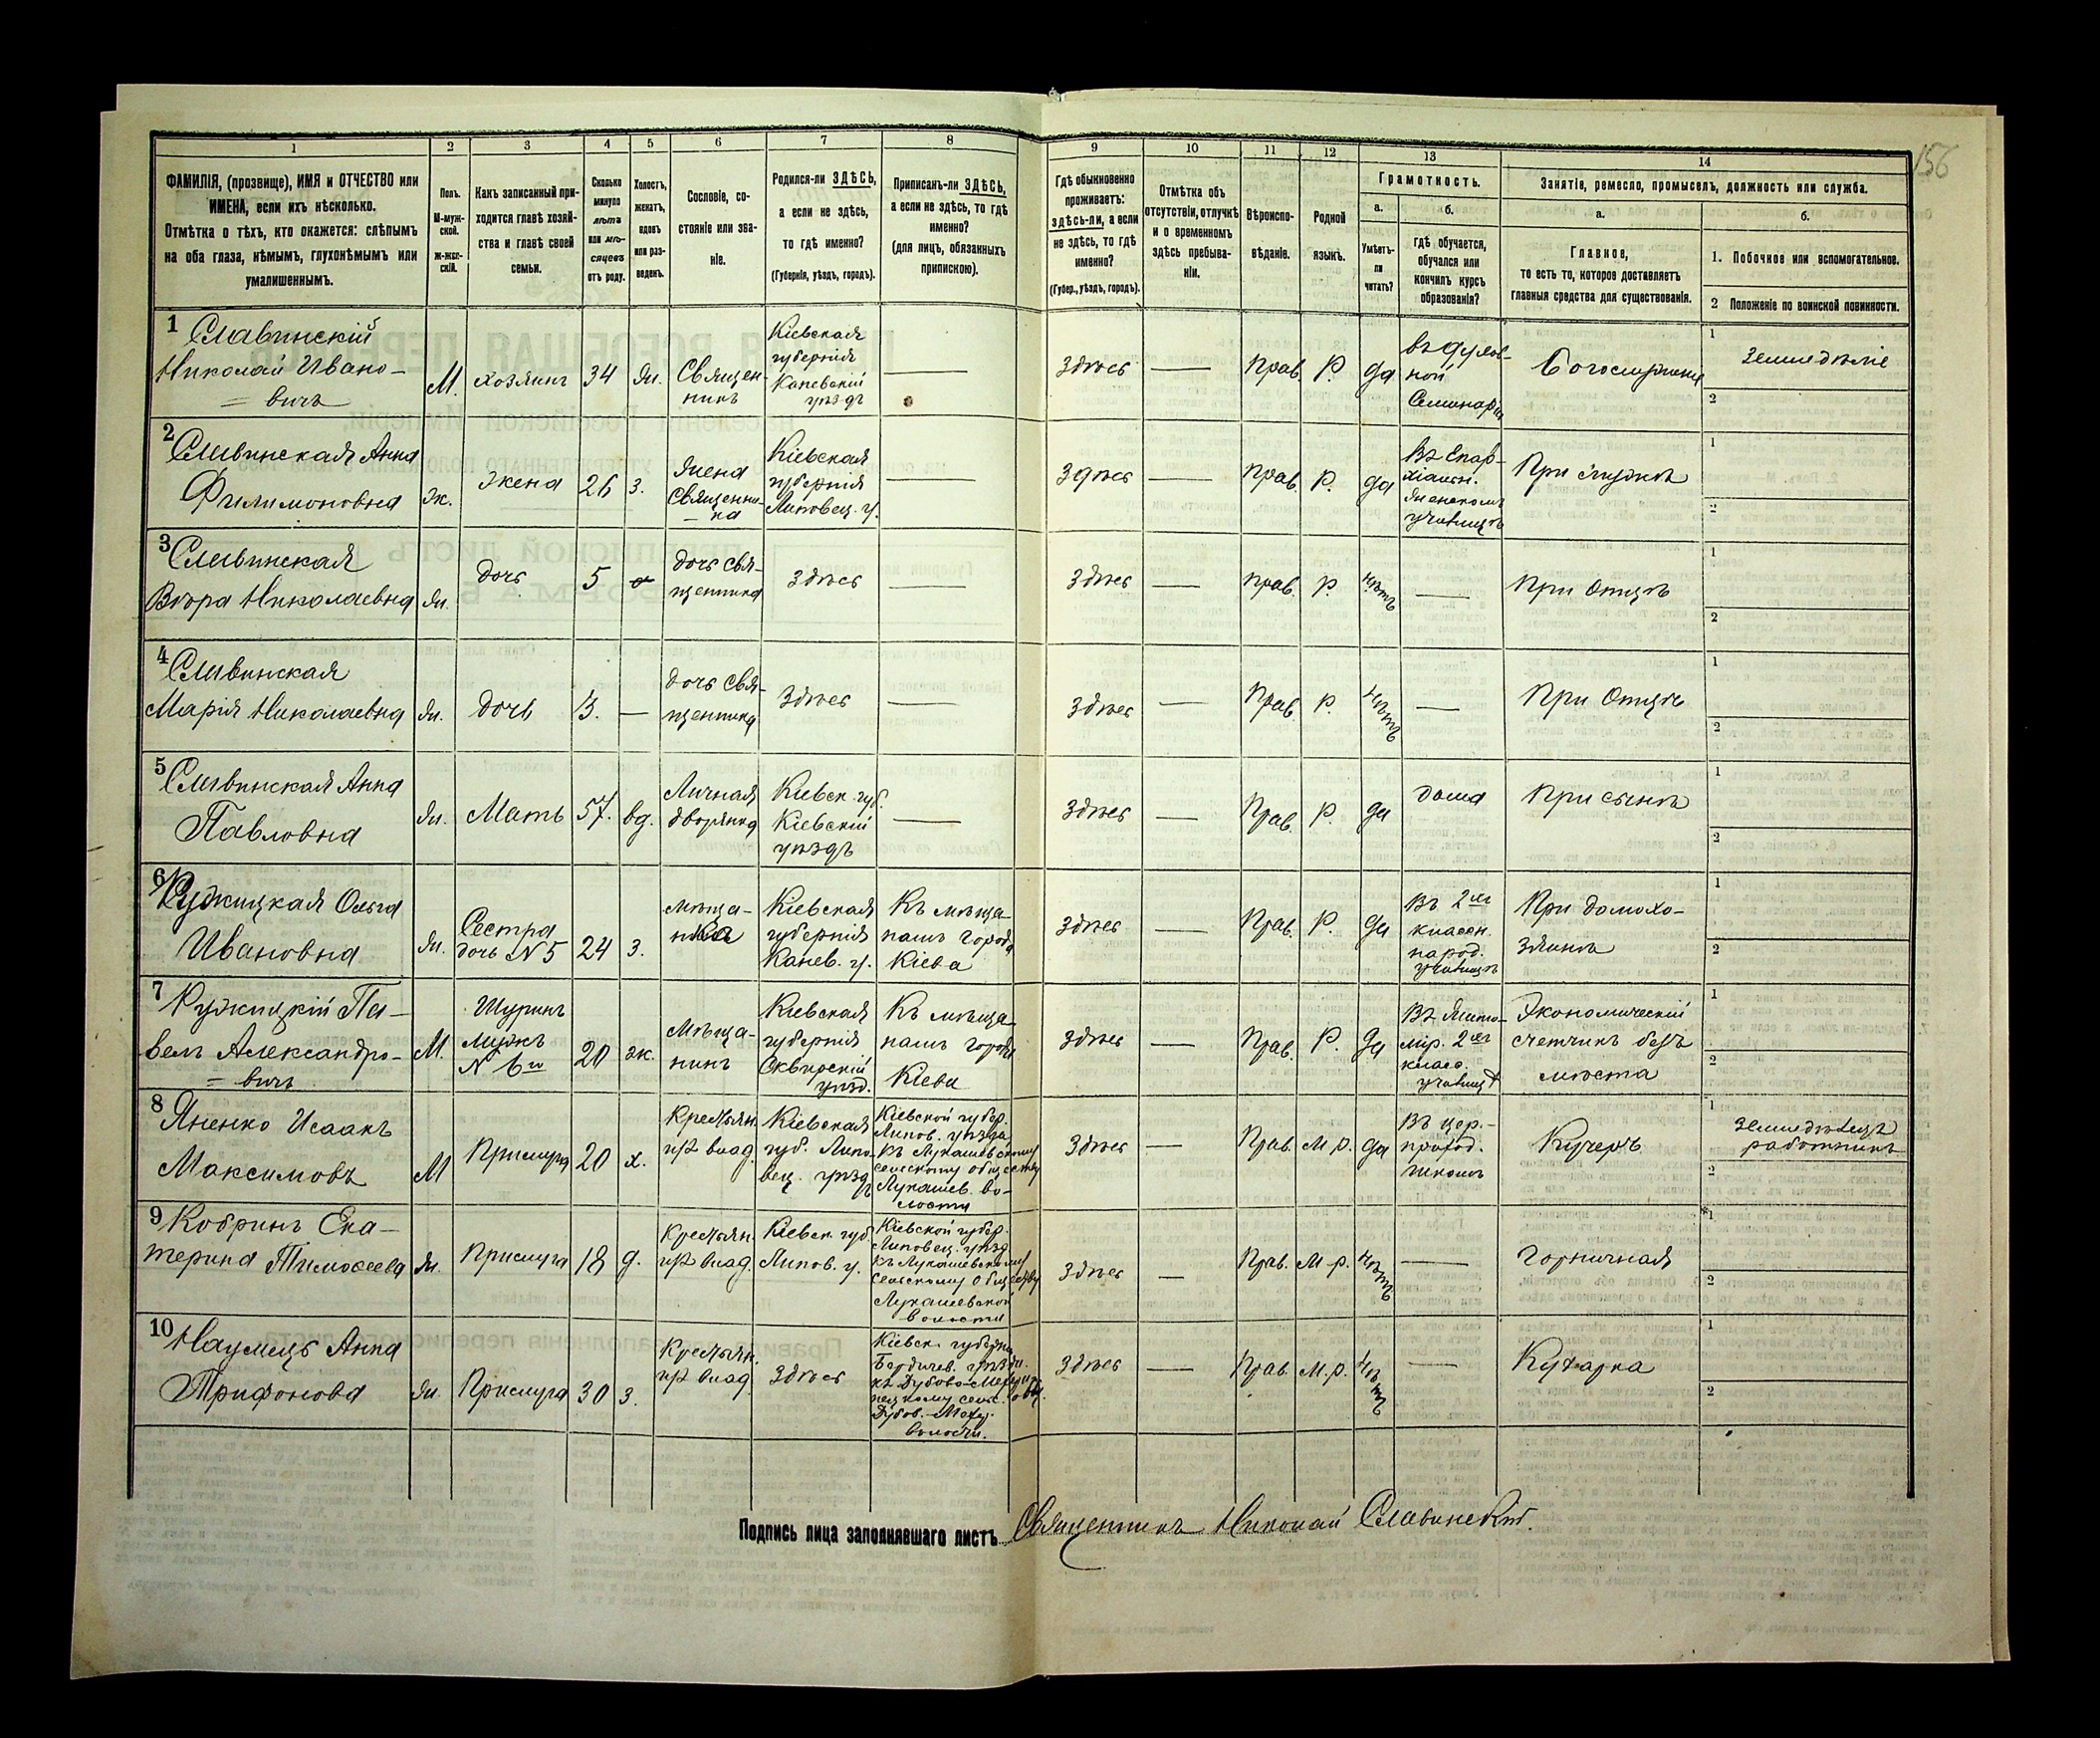 156
1 2 3 4 5 6 7 8 9 10 11 12 13 14
ФАМИЛІЯ, (прозвище), ИМЯ и ОТЧЕСТВО или
ИМЕНА, если ихъ нѣсколько.
Отмѣтка о тѣхъ, кто окажется: слѣпымъ
на оба глаза, нѣмымъ, глухонѣмымъ или
умалишеннымъ.
Полъ.
М-муж-
ской.
Ж-жен-
скій.
Какъ записанный при-
ходится главѣ хозяй-
ства и главѣ своей
семьи.
Сколько
минуло
лѣтъ
или мѣ-
сяцевъ
отъ роду.
Холостъ,
женатъ,
вдовъ
или раз-
веденъ.
Сословіе, со-
стояніе или зва-
ніе.
Родился-ли ЗДѢСЬ,
а если не здѣсь,
то гдѣ именно?
(Губернія, уѣздъ, городъ).
Приписанъ-ли ЗДѢСЬ,
а если не здѣсь, то гдѣ
именно?
(для лицъ, обязанныхъ
припискою).
Гдѣ обыкновенно
проживаетъ:
ЗДѢСЬ-ли, а если
не здѣсь, то гдѣ
именно?
(Губер., уѣздъ, городъ).
Отмѣтка объ
отсутствіи, отлучкѣ
и о временномъ
здѣсь пребыва-
ніи.
Вѣроиспо-
вѣданіе.
Родной
языкъ.
Грамотность.
а.
Умѣетъ-
ли
читать?
б.
гдѣ обучается,
обучался или
кончилъ курсъ
образованія?
Занятіе, ремесло, промыселъ, должность или служба.
а.
Главное,
то есть то, которое доставляетъ
главныя средства для существованія.
б.
1. Побочное или вспомогательное.
2 Положеніе по воинской повинности.
1 Славинскій
Николай Ивано-
вичъ
М.
хозяинъ
34
Жн.
Священ-
никъ
Кіевская
губернія
Каневскій
уѣздъ
—
Здѣсь
—
Прав.
Р.
да
въ духов-
ной
Семинаріи
Богослуженіе
1 Земледѣліе
2
2 Славинская Анна
Филимоновна
Ж.
жена
26
з.
Жена
Священни-
ка
Кіевская
губернія
Липовец. у.
—
Здѣсь
—
Прав.
Р.
да
Въ Епар-
хіальн.
Женскомъ
училищѣ
При мужѣ
1
2
3 Славинская
Вѣра Николаевна
Жн.
дочь
5
дочь свя-
щенника
здѣсь
—
здѣсь
—
прав.
Р.
нѣтъ
—
При Отцѣ
1
2
4 Славинская
Марія Николаевна
Жн.
дочь
3.
—
дочь свя-
щенника
Здѣсь
—
здѣсь
—
Прав.
Р.
нѣтъ
—
При Отцѣ
1
2
5 Славинская Анна
Павловна
Жн.
Мать
57.
вд.
Личная
дворянка
Кіевск. губ.
Кіевскій
уѣздъ
—
здѣсь
—
Прав.
Р.
да
дома
При сынѣ
1
2
6 Ружицкая Ольга
Ивановна
Жн.
Сестра
дочь N 5
24
з.
мѣща-
нка
Кіевская
губернія
Канев. у.
Къ мѣща-
намъ города
Кіева
здѣсь
—
Прав.
Р.
да
Въ 2хъ
классн.
народ.
училищѣ
При домохо-
зяинѣ
1
2
7 Ружицкій Па-
велъ Александро-
вичъ
М.
Шуринъ
мужъ
N 6го
20
ж.
Мѣща-
нинъ
Кіевская
губернія
Сквирскій
уѣзд.
Къ мѣща-
намъ города
Кіева
здѣсь
—
Прав.
Р.
да
Въ Жито-
мір. 2хъ
класс.
училищѣ
Экономическій
счетчикъ безъ
мѣста
1
2
8 Яненко Исаакъ
Максимовъ
М
Прислуга
20
х.
Крестьян.
изъ влад.
Кіевская
губ. Липо-
вец. уѣзд.
Кіевской губер.
Липов. уѣзда,
къ Лукашевскому
сельскому обществу
Лукашев. во-
лости
здѣсь
—
Прав.
М.р.
да
Въ цер.-
приход.
школѣ
Кучеръ
1 Земледѣлецъ
работникъ
2
9 Кобринъ Ека-
терина Тимоѳеева
Жн.
Прислуга
18
д.
Крестьян.
изъ влад.
Кіевск. губ.
Липов. у.
Кіевской губер.
Липовец. уѣзд.
къ Лукашевскому
сельскому обществу
Лукашевской
волости
Здѣсь
—
Прав.
М-р.
нѣтъ
—
Горничная
1
2
10 Наумецъ Анна
Трифонова
Жн.
Прислуга
30
з.
Крестьян.
изъ влад.
Здѣсь
Кіевск. губерн.
Бердичев. уѣзда.
волости.
Здѣсь
—
Прав.
М.р.
нѣтъ
—
Кухарка
1
2
Подпись лица заполнявшаго листъ Священникъ Николай Славинскій.